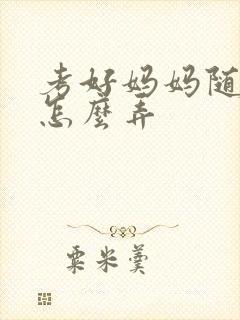 考好妈妈随
怎麽弄
粟米羹